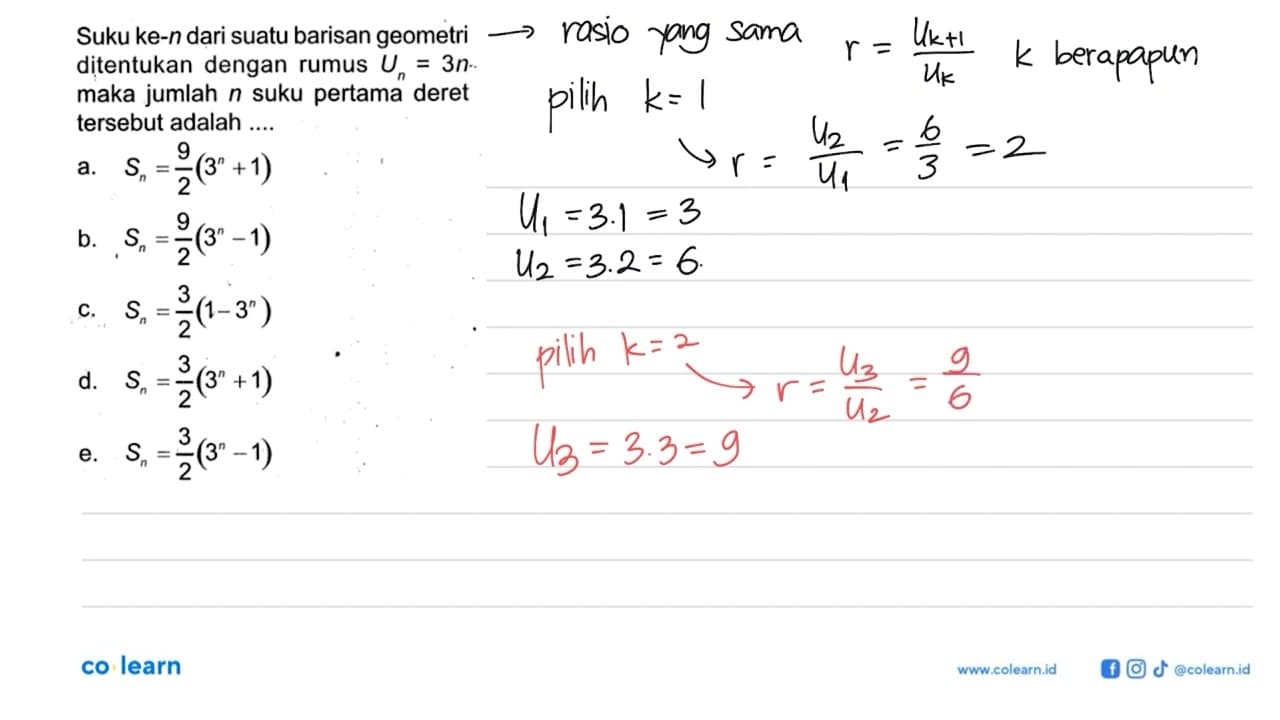 Suku ke-n dari suatu barisan geometri
ditentukan dengan rumus Uₙ = 3n
maka jumlah n suku pertama deret
tersebut adalah ....
a. Sₙ = 9/2 (3ⁿ + 1)
b. Sₙ = 9/2 (3ⁿ − 1)
c. Sₙ = 3/2 (1 − 3ⁿ)
d. Sₙ = 3/2 (3ⁿ + 1)
e. Sₙ = 3/2 (3ⁿ − 1)
→ rasio yang sama r = Uₖ₊₁/Uₖ k berapapun
pilih k = 1
↘ r = U₂/U₁ = 6/3 = 2
U₁ = 3.1 = 3
U₂ = 3.2 = 6.
pilih k = 2
↘ r = U₃/U₂ = 9/6
U₃ = 3.3 = 9
co learn
www.colearn.id @colearn.id